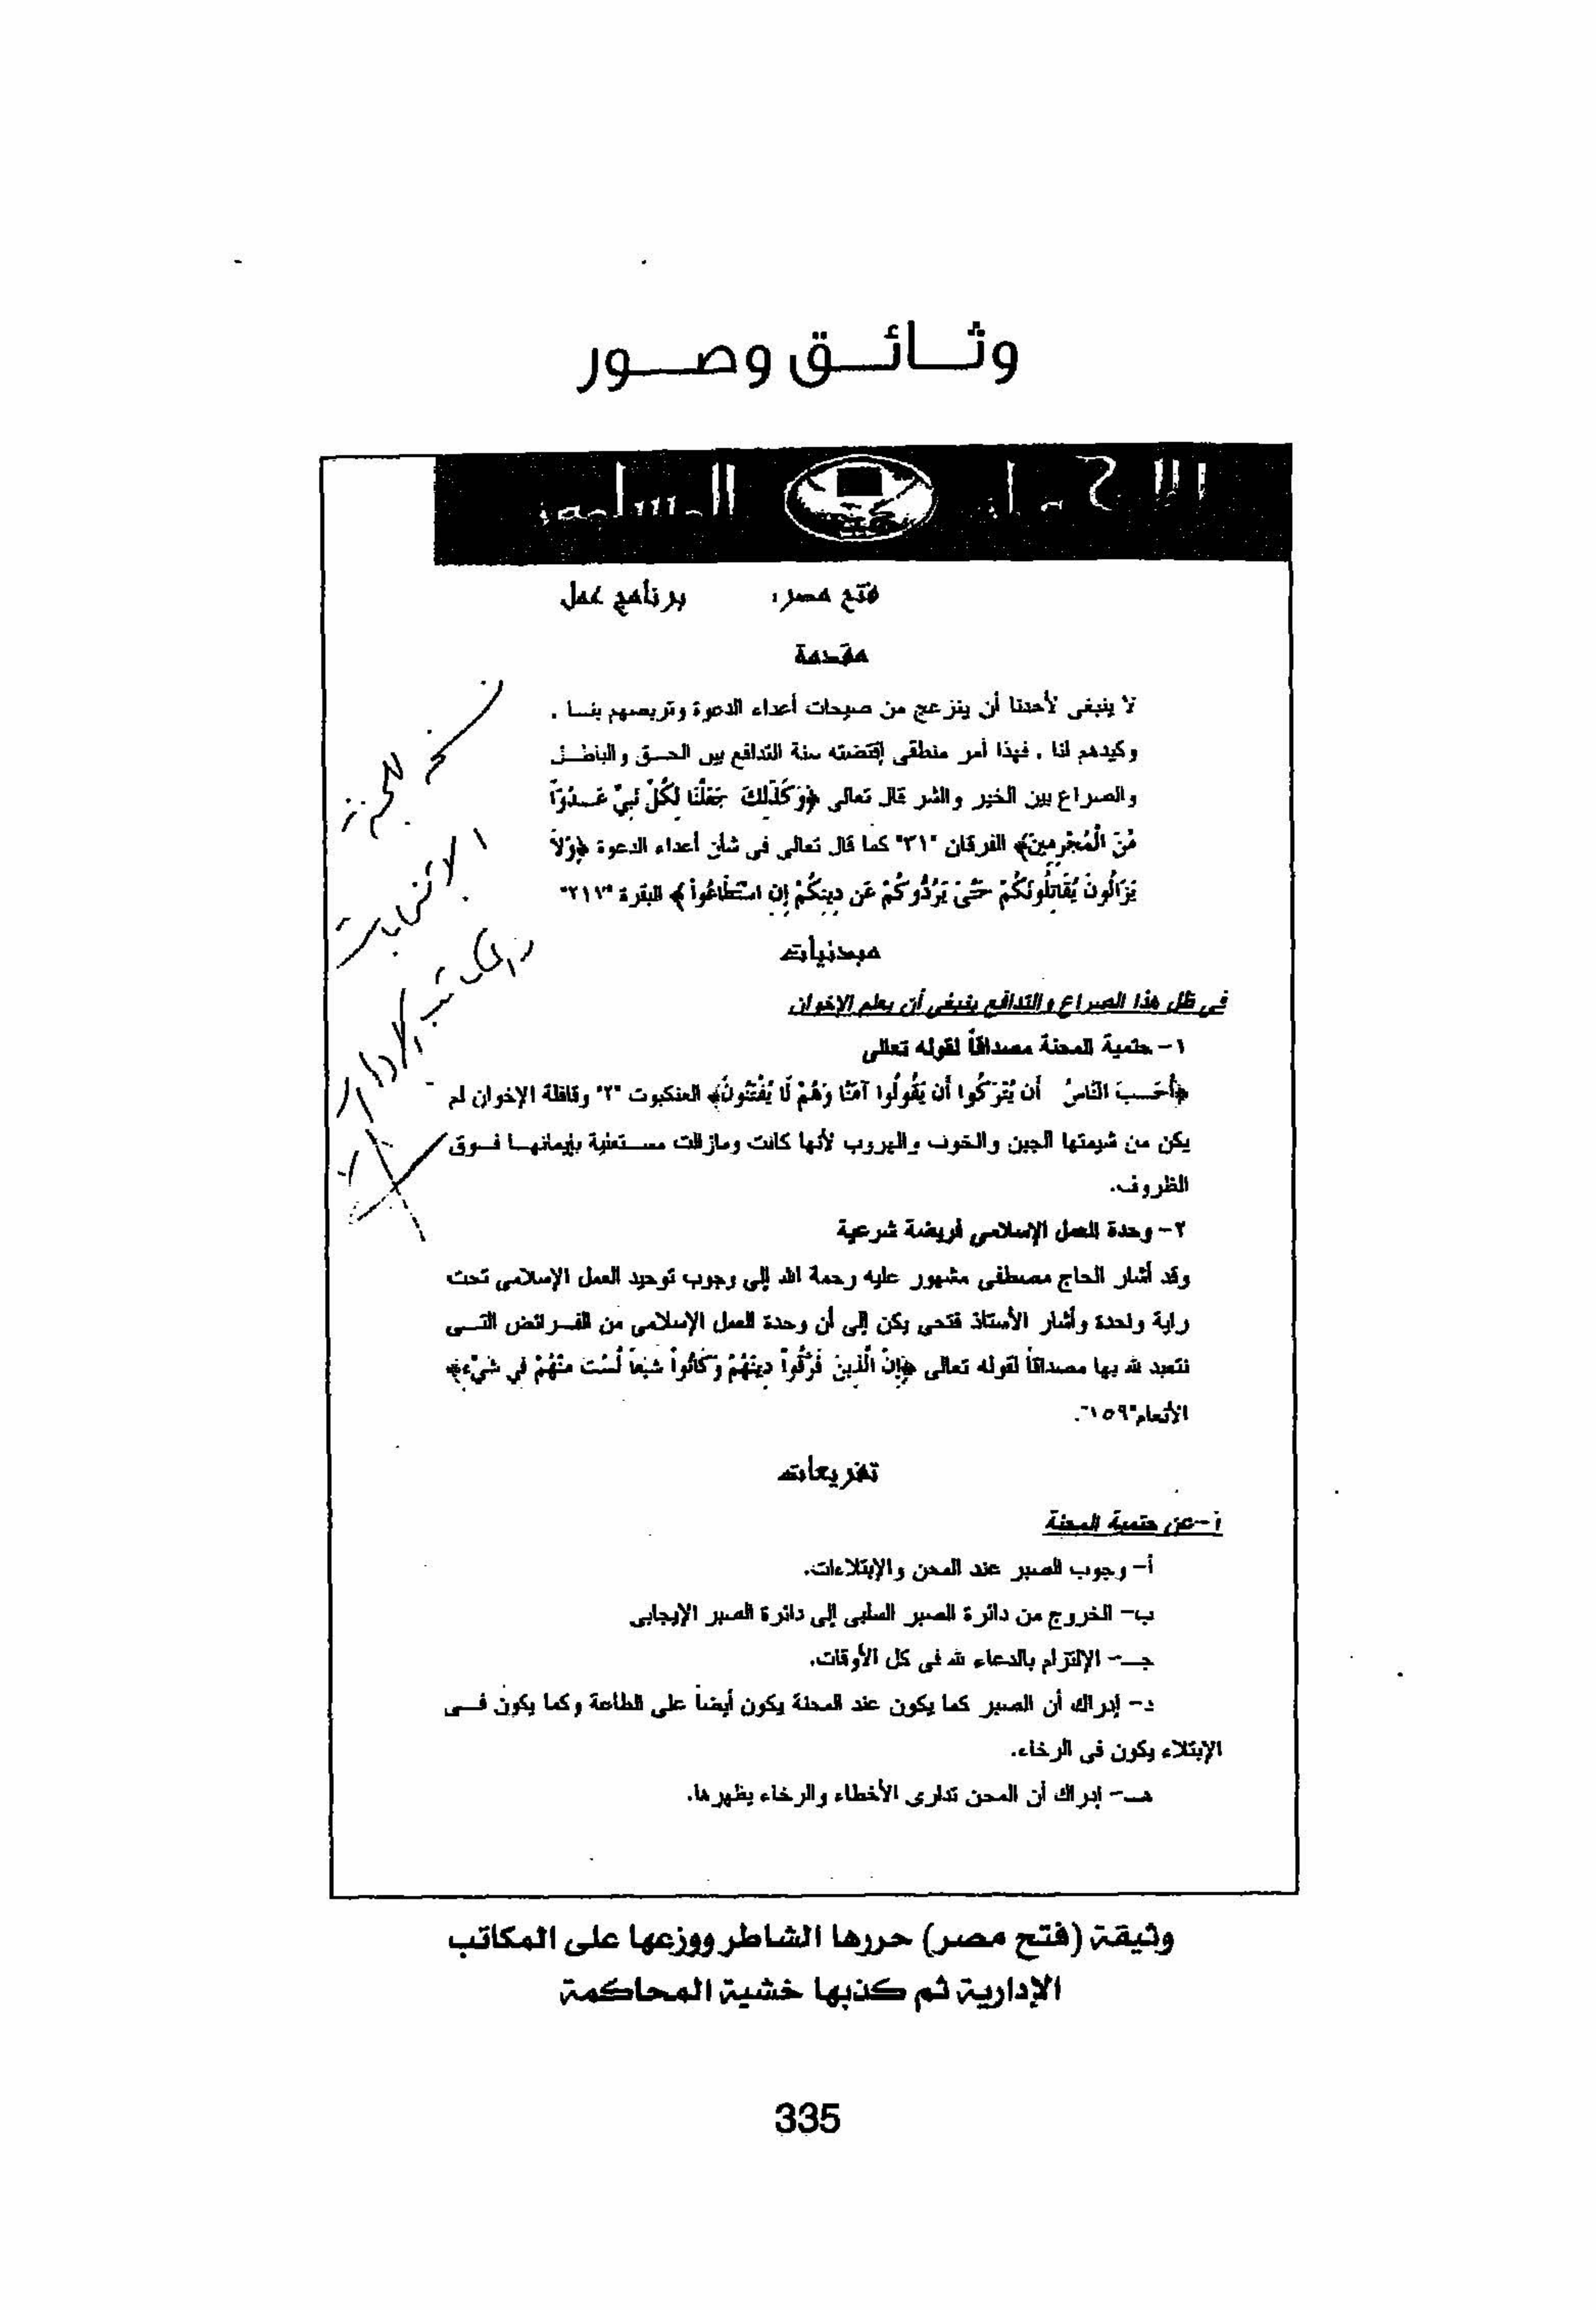 وثائق وصور
الإخوان المسلمون
فتح مصر: برنامج عمل
مقدمة
لا ينبغى لأحدنا أن ينزعج من صيحات أعداء الدعوة وتربصهم بنا .
وكيدهم لنا . فهذا أمر منطقى إقتضته سنة التدافع بين الحق والباطل
والصراع بين الخير والشر قال تعالى ﴿وَكَذَلِكَ جَعَلْنَا لِكُلِّ نَبِيٍّ عَدُوّاً
مِّنَ الْمُجْرِمِينَ﴾ الفرقان "٣١" كما قال تعالى فى شأن أعداء الدعوة ﴿وَلاَ
يَزَالُونَ يُقَاتِلُونَكُمْ حَتَّىَ يَرُدُّوكُمْ عَن دِينِكُمْ إِنِ اسْتَطَاعُواْ﴾ البقرة "٢١٧"
مبدئيات
فى ظل هذا الصراع والتدافع ينبغى أن يعلم الإخوان
١- حتمية المحنة مصداقاً لقوله تعالى
﴿أَحَسِبَ النَّاسُ أَن يُتْرَكُوا أَن يَقُولُوا آمَنَّا وَهُمْ لَا يُفْتَنُونَ﴾ العنكبوت "٢" وقافلة الإخوان لم
يكن من شيمتها الجبن والخوف والهروب لأنها كانت ومازالت مستعلية بإيمانها فوق
الظروف.
٢- وحدة العمل الإسلامي فريضة شرعية
وقد أشار الحاج مصطفى مشهور عليه رحمة الله إلى وجوب توحيد العمل الإسلامى تحت
راية واحدة وأشار الأستاذ فتحى يكن إلى أن وحدة العمل الإسلامى من الفرائض التى
نتعبد لله بها مصداقاً لقوله تعالى ﴿إِنَّ الَّذِينَ فَرَّقُواْ دِينَهُمْ وَكَانُواْ شِيَعاً لَّسْتَ مِنْهُمْ فِي شَيْءٍ﴾
الأنعام"١٥٩".
تفريعات
أ-عن حتمية المحنة
أ- وجوب الصبر عند المحن والإبتلاءات.
ب- الخروج من دائرة الصبر السلبى إلى دائرة الصبر الإيجابى
جـ- الإلتزام بالدعاء لله فى كل الأوقات.
د- إدراك أن الصبر كما يكون عند المحنة يكون أيضاً على الطاعة وكما يكون فى
الإبتلاء يكون فى الرخاء.
هـ- إدراك أن المحن تدارى الأخطاء والرخاء يظهرها.
نسخة للجنة
الانتخابات
الإدارية
وثيقة (فتح مصر) حررها الشاطر ووزعها على المكاتب
الإدارية ثم كذبها خشية المحاكمة
335